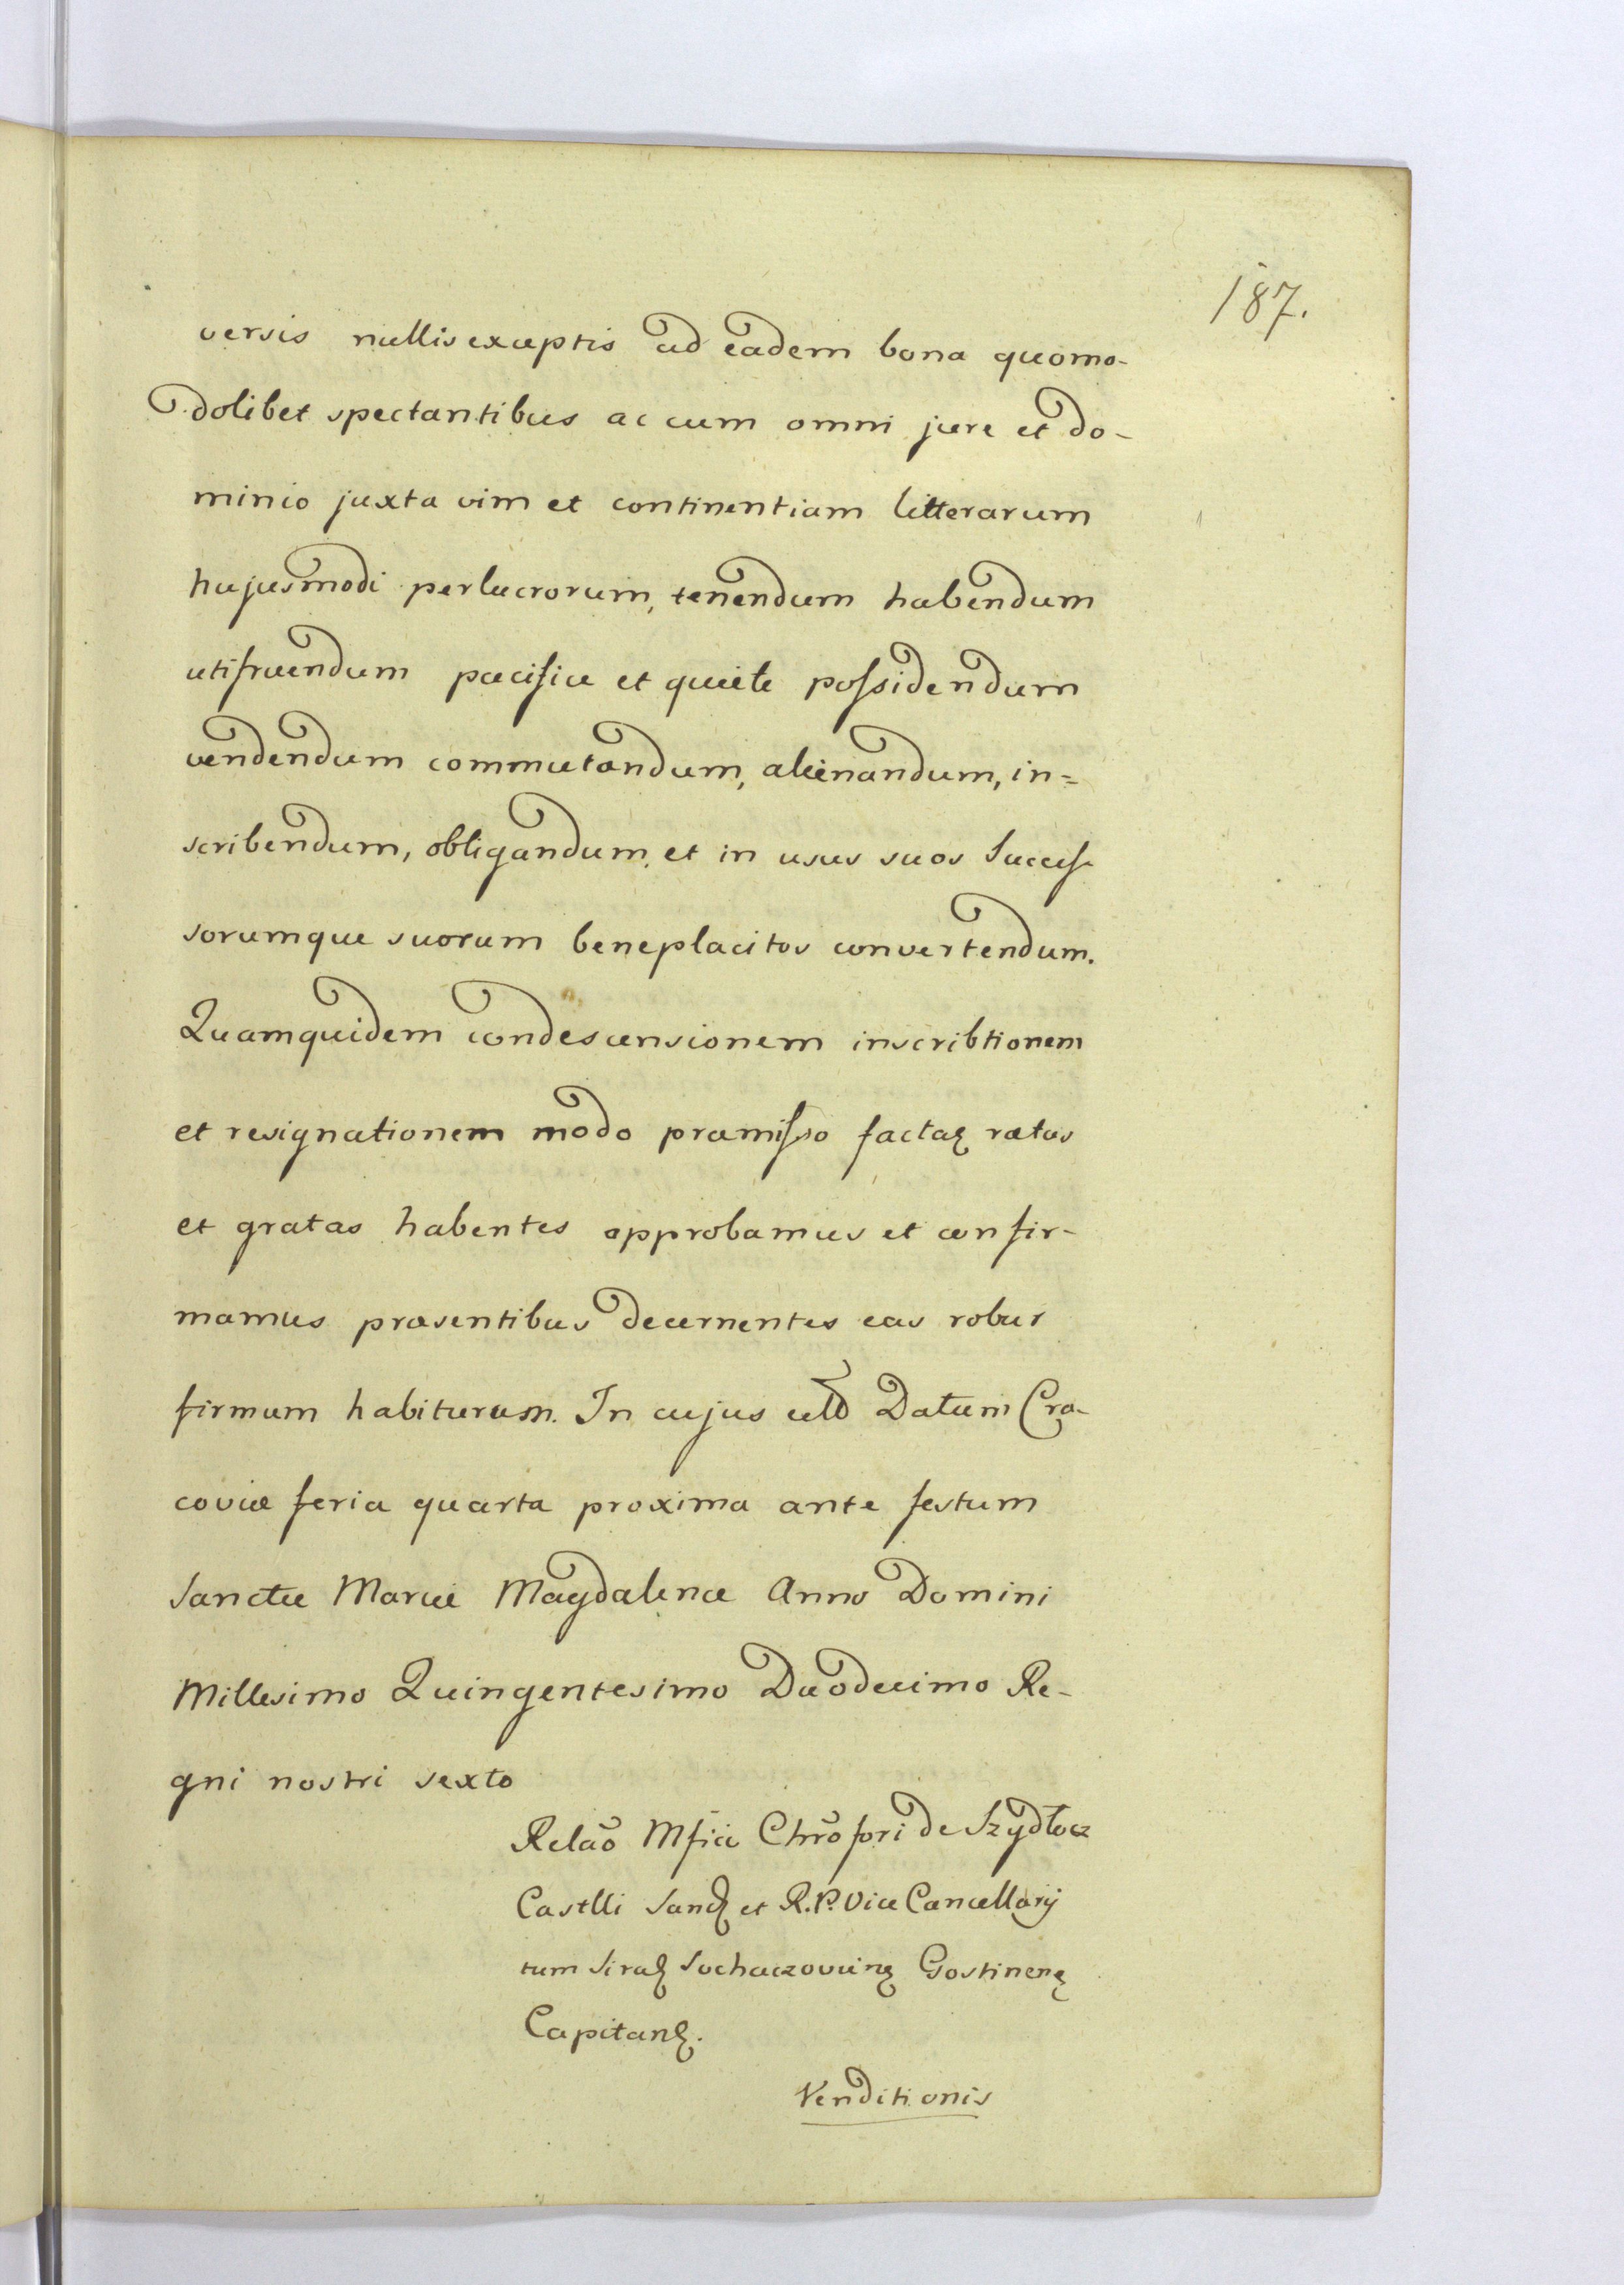 187.
versis nullis exceptis ad eadem bona quomo-
dolibet spectantibus ac cum omni jure et do-
minio juxta vim et continentiam litterarum
hujusmodi perlucrorum, tenendum habendum
utifruendum pacifice et quiete possidendum
vendendum commutandum, alienandum, in=
scribendum, obligandum, et in usus suos Succes-
sorumque suorum beneplacitos convertendum.
Quamquidem condescensionem inscribtionem
et resignationem modo præmisso factas ratas
et gratas habentes approbamus et confir-
mamus præsentibus decernentes eas robur
firmum habiturum. In cujus Datum Cra-
coviæ feria quarta proxima ante festum
Sanctæ Mariæ Magdalenæ Anno Domini
Millesimo Quingentesimo Duodecimo Re-
gni nostri sexto
Relãо Mfici Chrõfori de Szydłocz
Castlli Sand et R. P. Vice Cancellarij
tum Sirad Sochaczoviens Gostinens
Capitan.
Venditionis